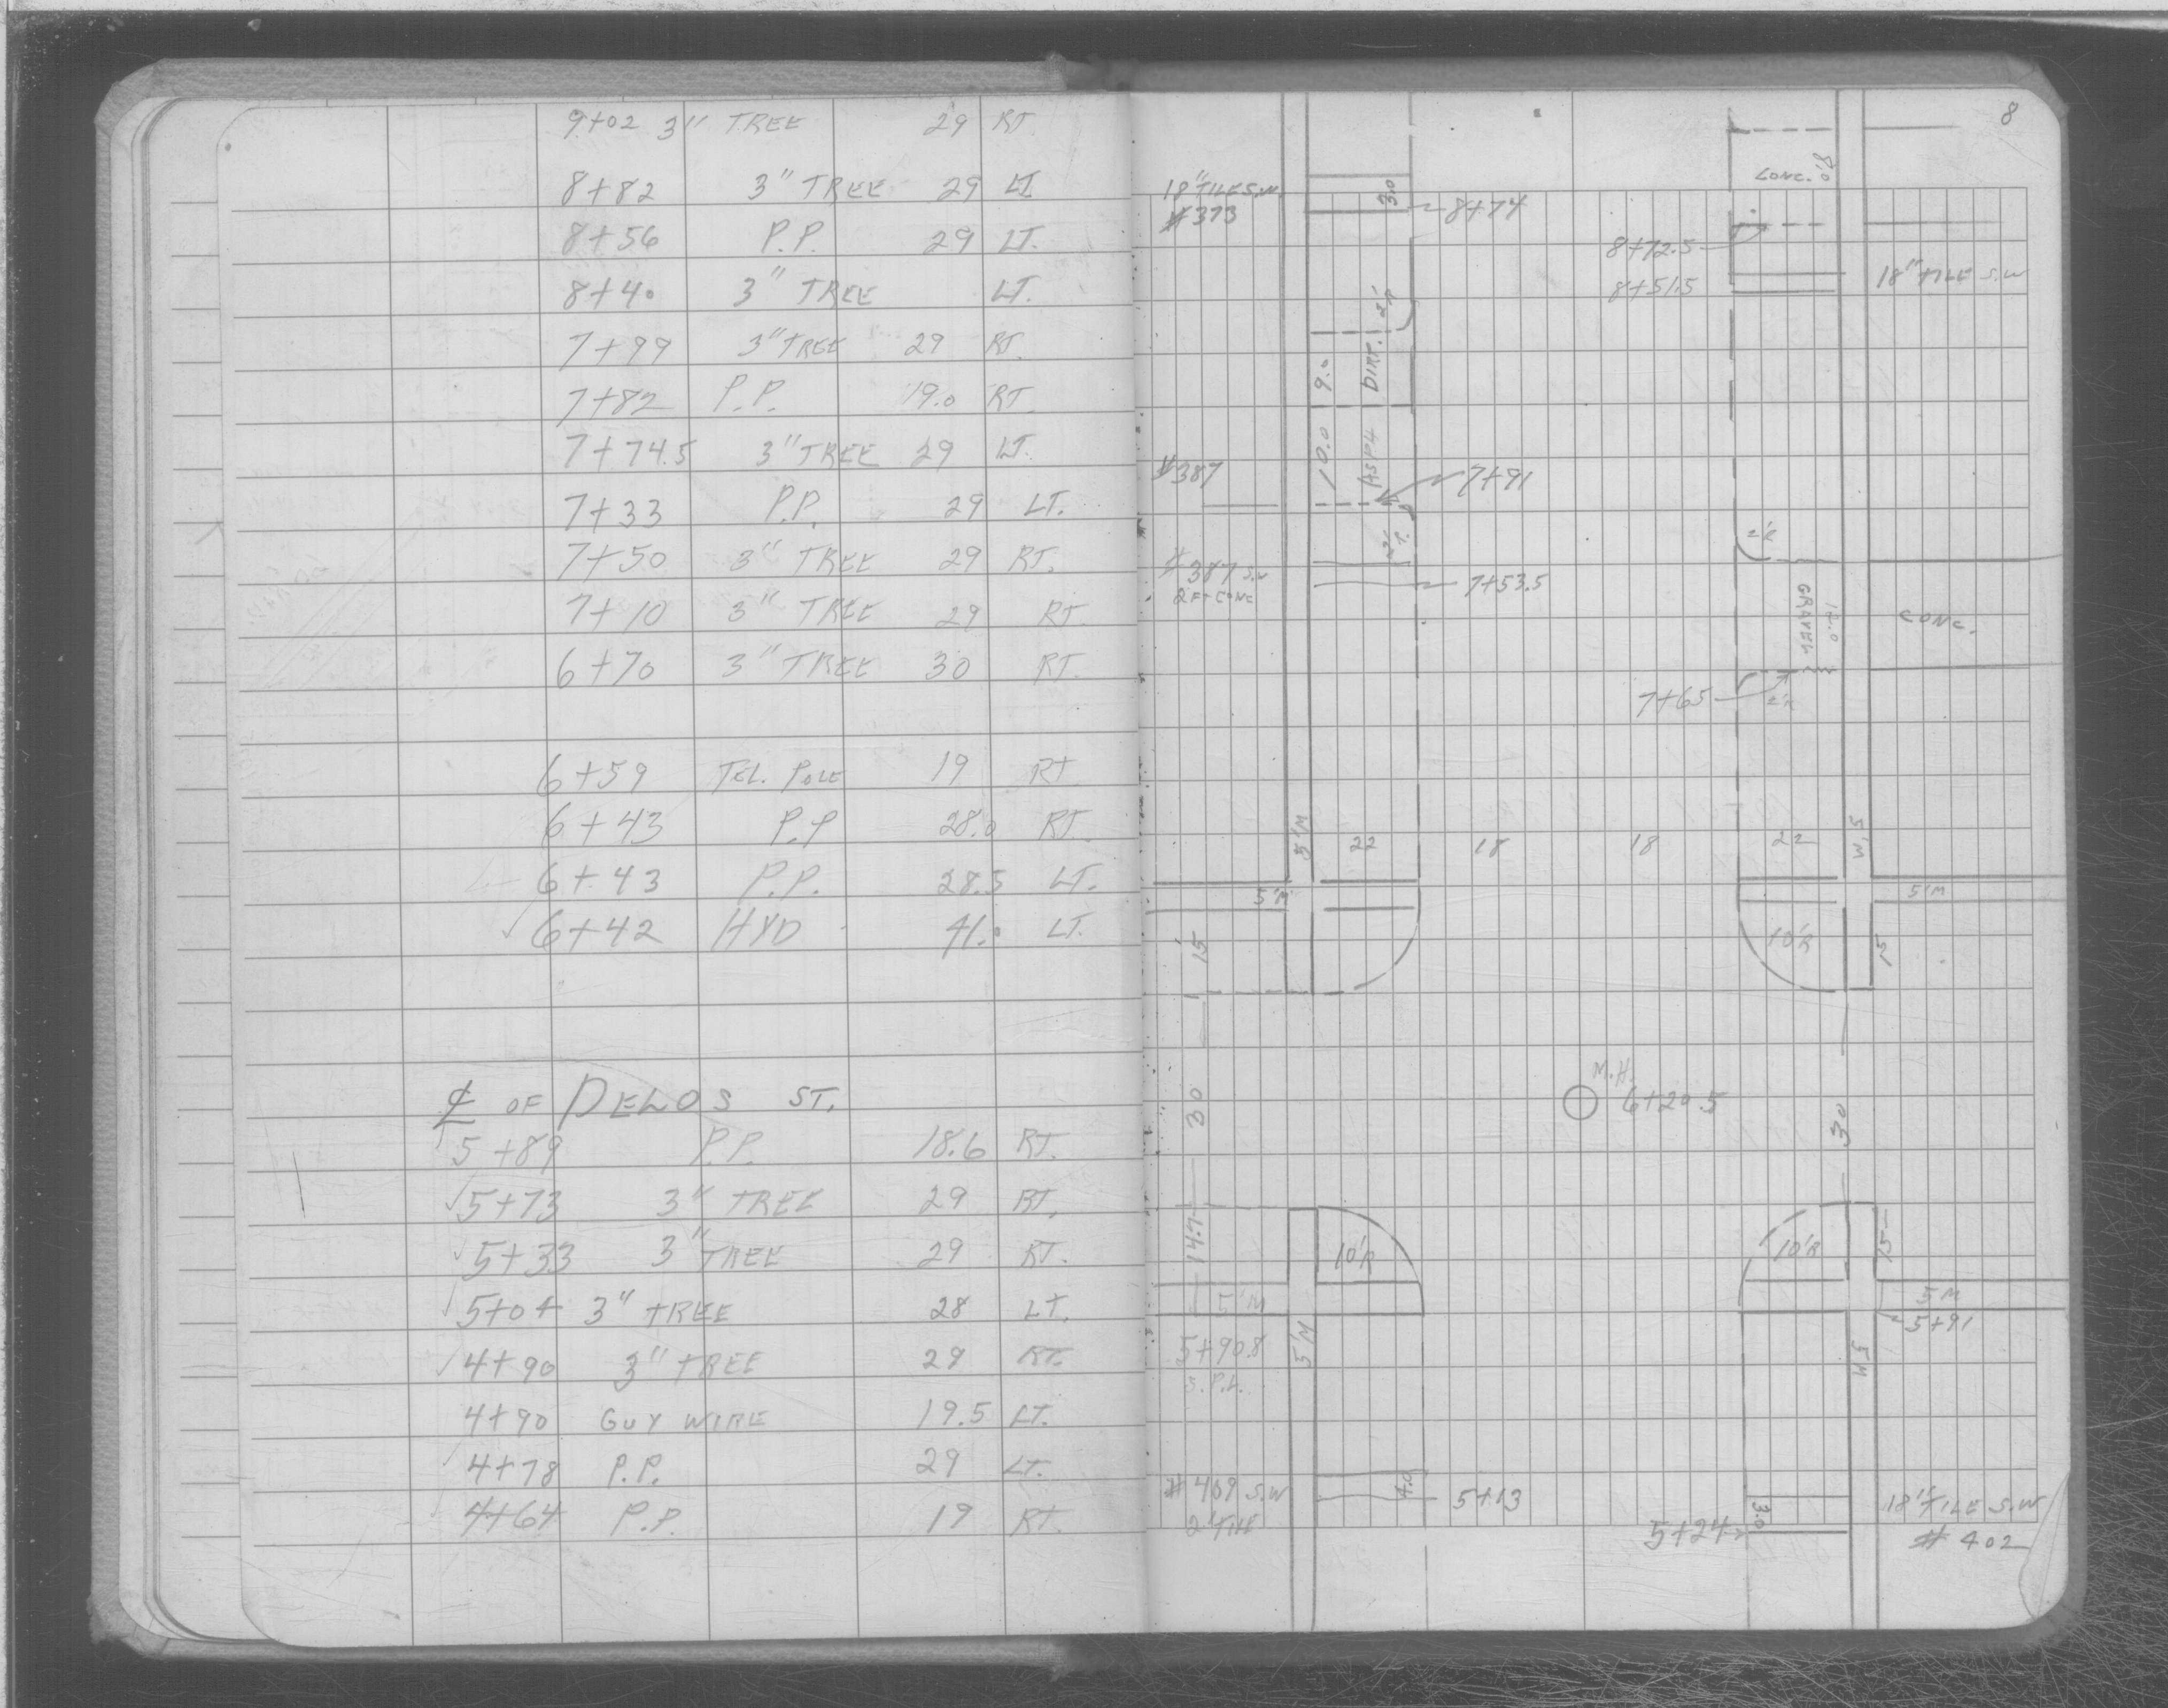 9+02 3" TREE 29 RT.
8+82 3" TREE 29 LT
8+56 P.P. 29 LT.
8+40 3" TREE LT.
7+99 3" TREE 29 RT.
7+82 P.P. 19.0 RT.
7+74.5 3" TREE 29 LT.
7+33 P.P. 29 LT.
7+50 3" TREE 29 RT.
7+10 3" TREE 29 RT.
6+70 3" TREE 30 RT.
6+59 TEL. POLE 19 RT
6+43 P.P 28.0 RT.
6+43 P.P. 28.5 LT.
6+42 HYD 41.0 LT.
℄ OF DELOS ST.
5+89 P.P. 18.6 RT.
5+73 3" TREE 29 RT.
5+33 3" TREE 29 RT.
5+04 3" TREE 28 LT.
4+90 3" TREE 29 RT.
4+90 GUY WIRE 19.5 LT.
4+78 P.P. 29 LT.
4+64 P.P. 19 RT.
8
CONC. 8.0
18" TILE S.W.
#373
3.0
8+74
8+72.5
8+51.5
18" TILE S.W
2'R
9.0 DIRT.
10.0 ASPH
#387
7+91
2'R
#387 S.W
2 FT CONC
7+53.5
GRAVEL 10.0
CONC.
7+65
2'R
5'M 22 18 18 22 5'M
5'M 5'M
15 10'R 15
M.H.
30 6+20.5 30
14.7 10'R 10'R 15
5'M 5'M
5+91
5+90.8 5'M 5'M
S.P.L.
#409 S.W 4.0 5+13
2' TILE
3.0 18" TILE S.W
5+24
#402